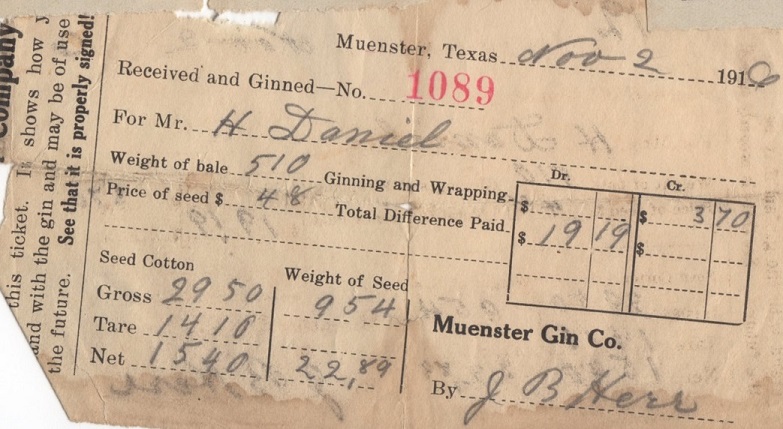 Company
this ticket. It shows how
and with the gin and may be of use
the future. See that it is properly signed!
Muenster, Texas Nov 2 1916
Received and Ginned—No. 1089
For Mr. H Daniel
Weight of bale 510 Ginning and Wrapping
Price of seed $ 48 Total Difference Paid
Dr. Cr.
$ $ 3 70
$ 19 19 $
Seed Cotton Weight of Seed
Gross 2950 954
Tare 1410
Net 1540 22,89
Muenster Gin Co.
By J B Herr